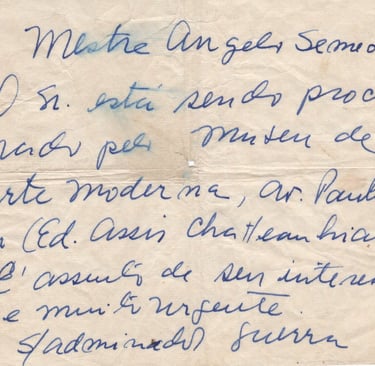 Mestre Angelo Semeo
O Sr. está sendo proc
rado pelo Museu de
rte moderna, Av. Paul
(Ed. Assis Chatteaubria
É assunto de seu interes
e muito urgente.
S/admirador Guerra